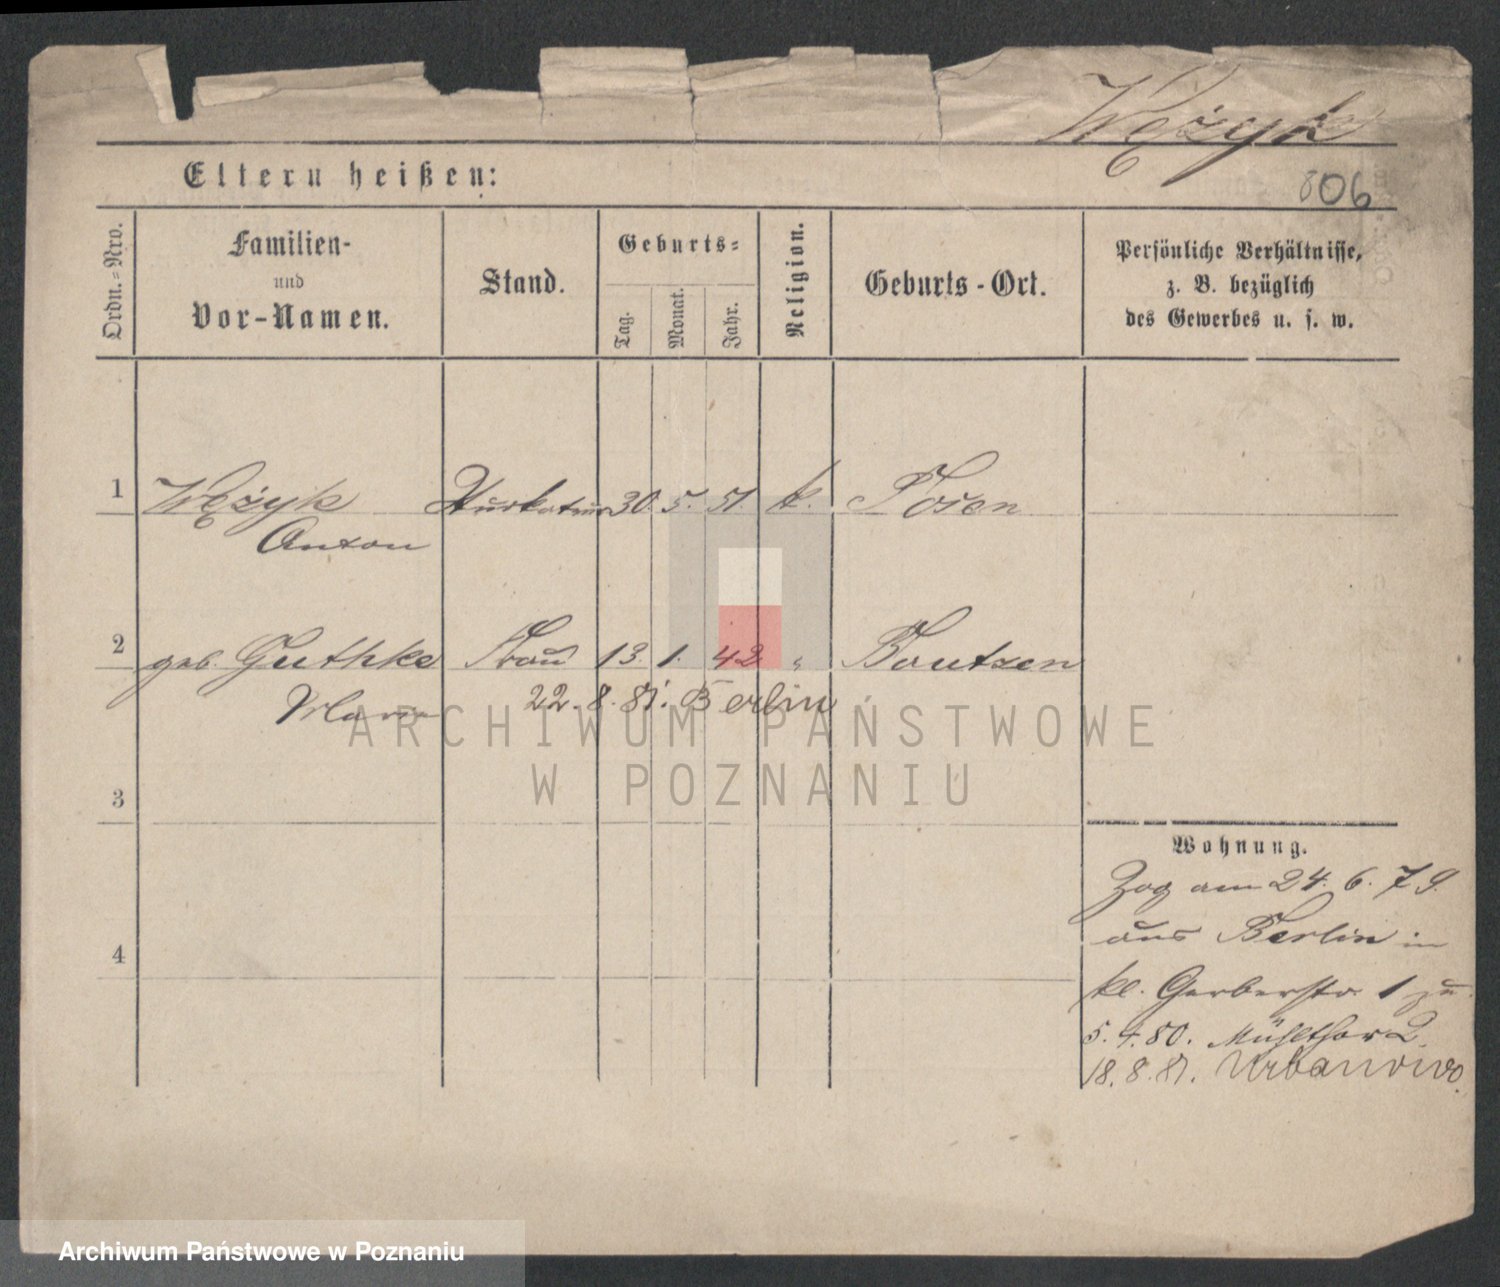 Wężyk
Eltern heißen:
806
Ordn.-Nro.
Familien-
und
Vor-Namen.
Stand.
Geburts-
Tag.
Monat.
Jahr.
Religion.
Geburts-Ort.
Persönliche Verhältnisse,
z. B. bezüglich
des Gewerbes u. s. w.
1 Wężyk 30. 5. 51. k. Posen
Anton
2 geb. Guthke Frau 13. 1. 42 " Bautzen
Maria 22. 8. 81. Berlin
ARCHIWUM PAŃSTWOWE
W POZNANIU
3
Wohnung.
Zog am 24. 6. 79.
aus Berlin in
4
kl. Gerberstr. 1 zu
5. 4. 80. Mühlthor 2.
18. 8. 81. Urbanowo.
Archiwum Państwowe w Poznaniu